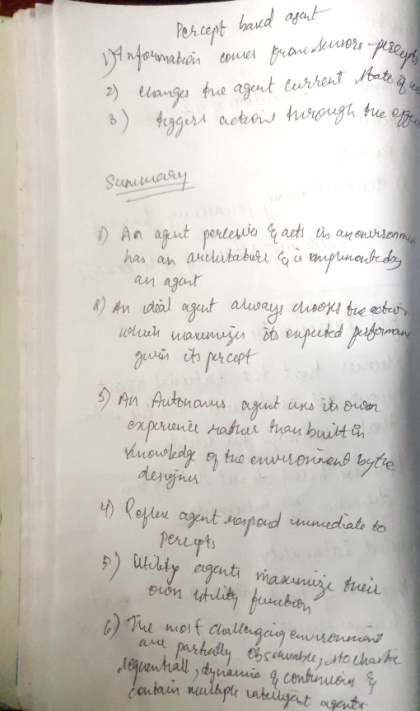 Percept based agent
1) Information comes from sensors - percepts
2) changes the agent current state of
3) triggers actions through the effe
Summary
1) An agent perceives & acts in an environmen
has an architecture & is implemented by
an agent
2) An ideal agent always chooses the action
which maximizes its expected performan
given its percept
3) An Autonomus agent uses its own
experience rather than built in
knowledge of the environment by the
designer
4) Reflex agent respond immediate to
percepts
5) Utility agents maximize their
own utility function
6) The most challenging environment
are partially observable, stochastic
sequentiall, dynamic & continuous &
contain multiple intelligent agents.